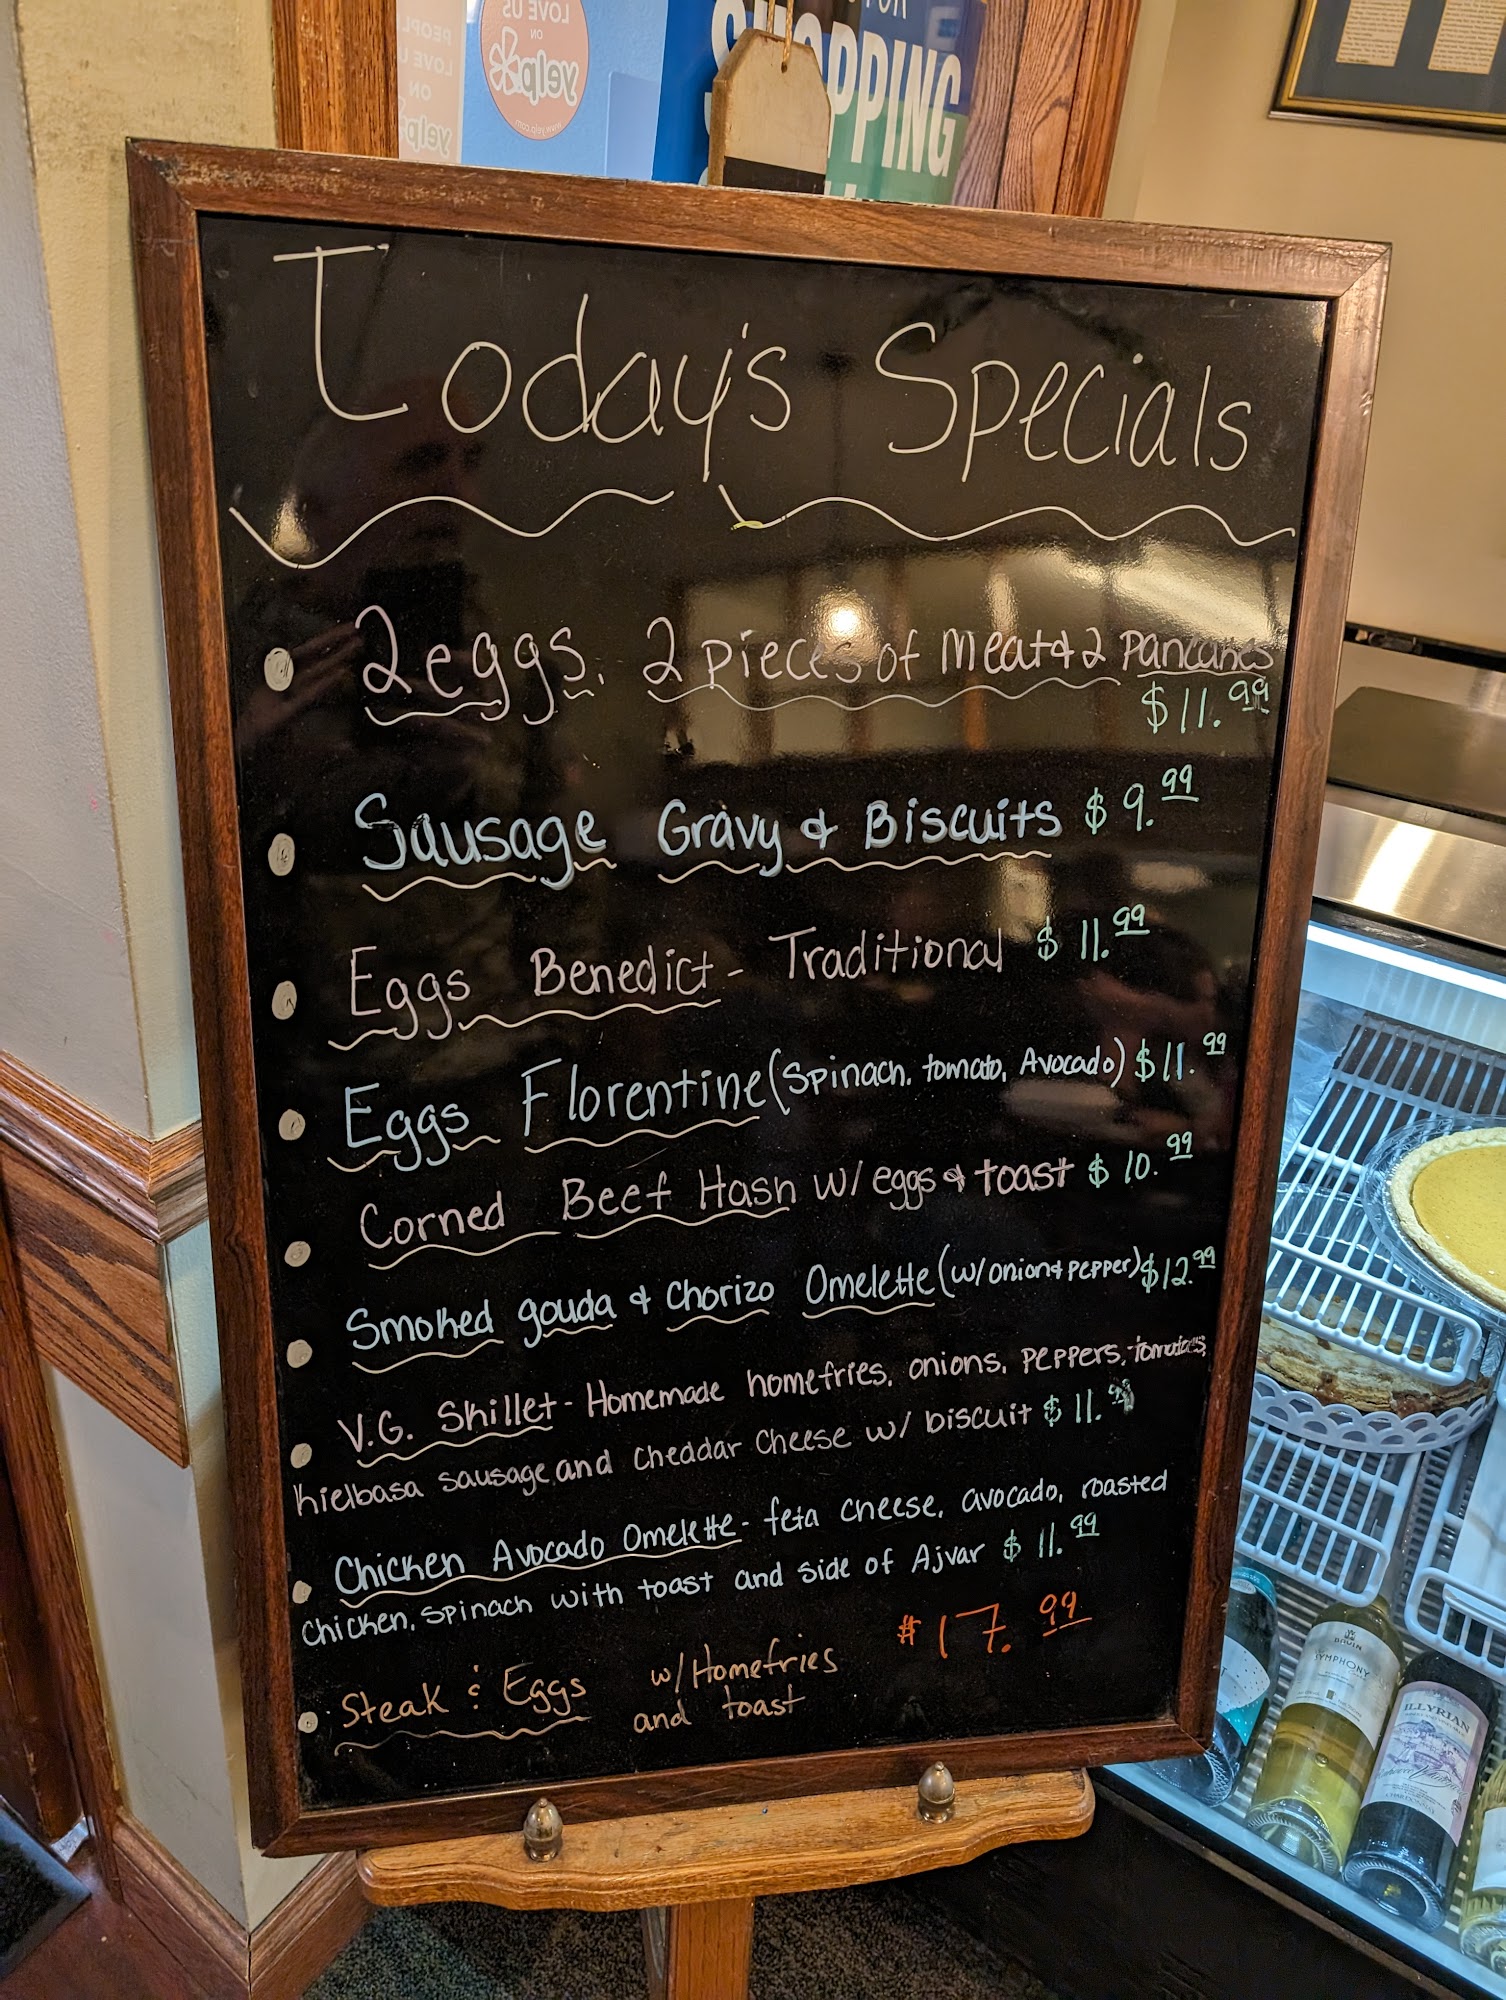 PEOPLE
LOVE US
ON
yelp
LOVE US
ON
yelp
www.yelp.com
FOR
SHOPPING
Today's Specials
2 eggs, 2 pieces of meat & 2 pancakes
$11.99
Sausage Gravy & Biscuits $9.99
Eggs Benedict - Traditional $11.99
Eggs Florentine (Spinach, tomato, Avocado) $11.99
Corned Beef Hash w/ eggs & toast $10.99
Smoked gouda & Chorizo Omelette (w/ onion & pepper) $12.99
V.G. Skillet - Homemade homefries, onions, peppers, tomatoes,
kielbasa sausage and cheddar cheese w/ biscuit $11.99
Chicken Avocado Omelette - feta cheese, avocado, roasted
chicken, spinach with toast and side of Ajvar $11.99
Steak & Eggs w/ Homefries $17.99
and toast
SYMPHONY
ILLYRIAN
CHARDONNAY